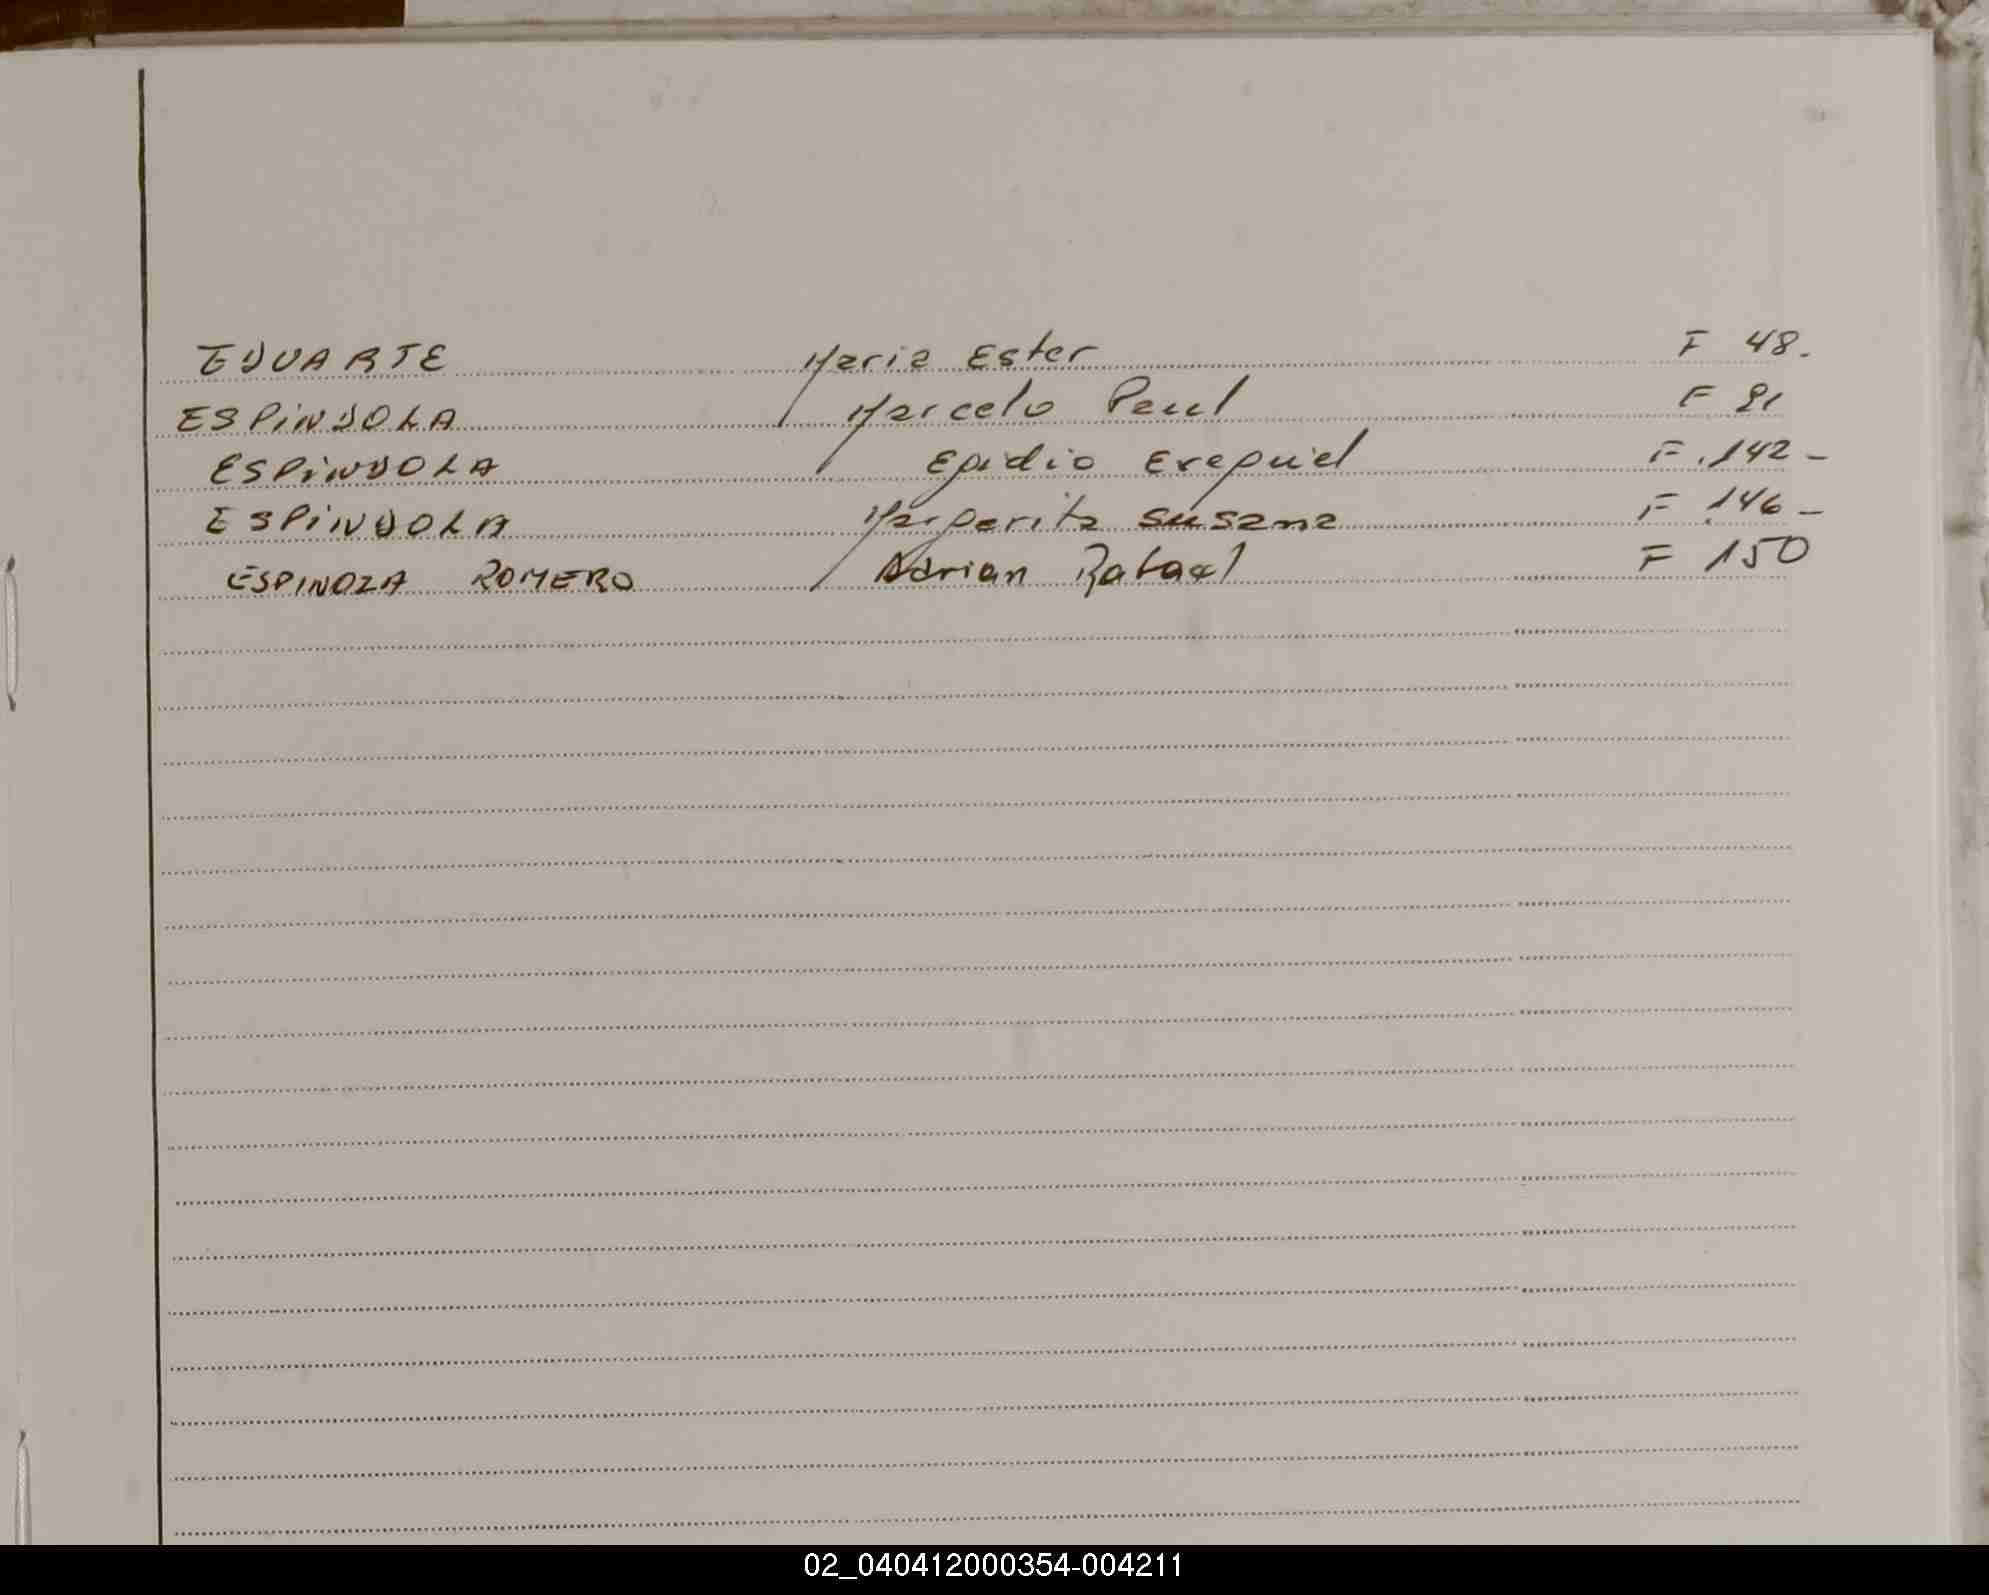 EDUARTE Maria Ester F 48.
ESPiNDOLA Marcelo Paul F 81
ESPiNDOLA Egidio Exequiel F. 142 -
ESPiNDOLA Margarita Susana F 146 -
ESPINOZA ROMERO Adrian Rafael F 150
02_040412000354-004211